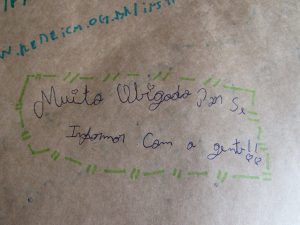 www.redeicm.og.br/iris
Muito Obigado Por Se
Informor Com a gente!!